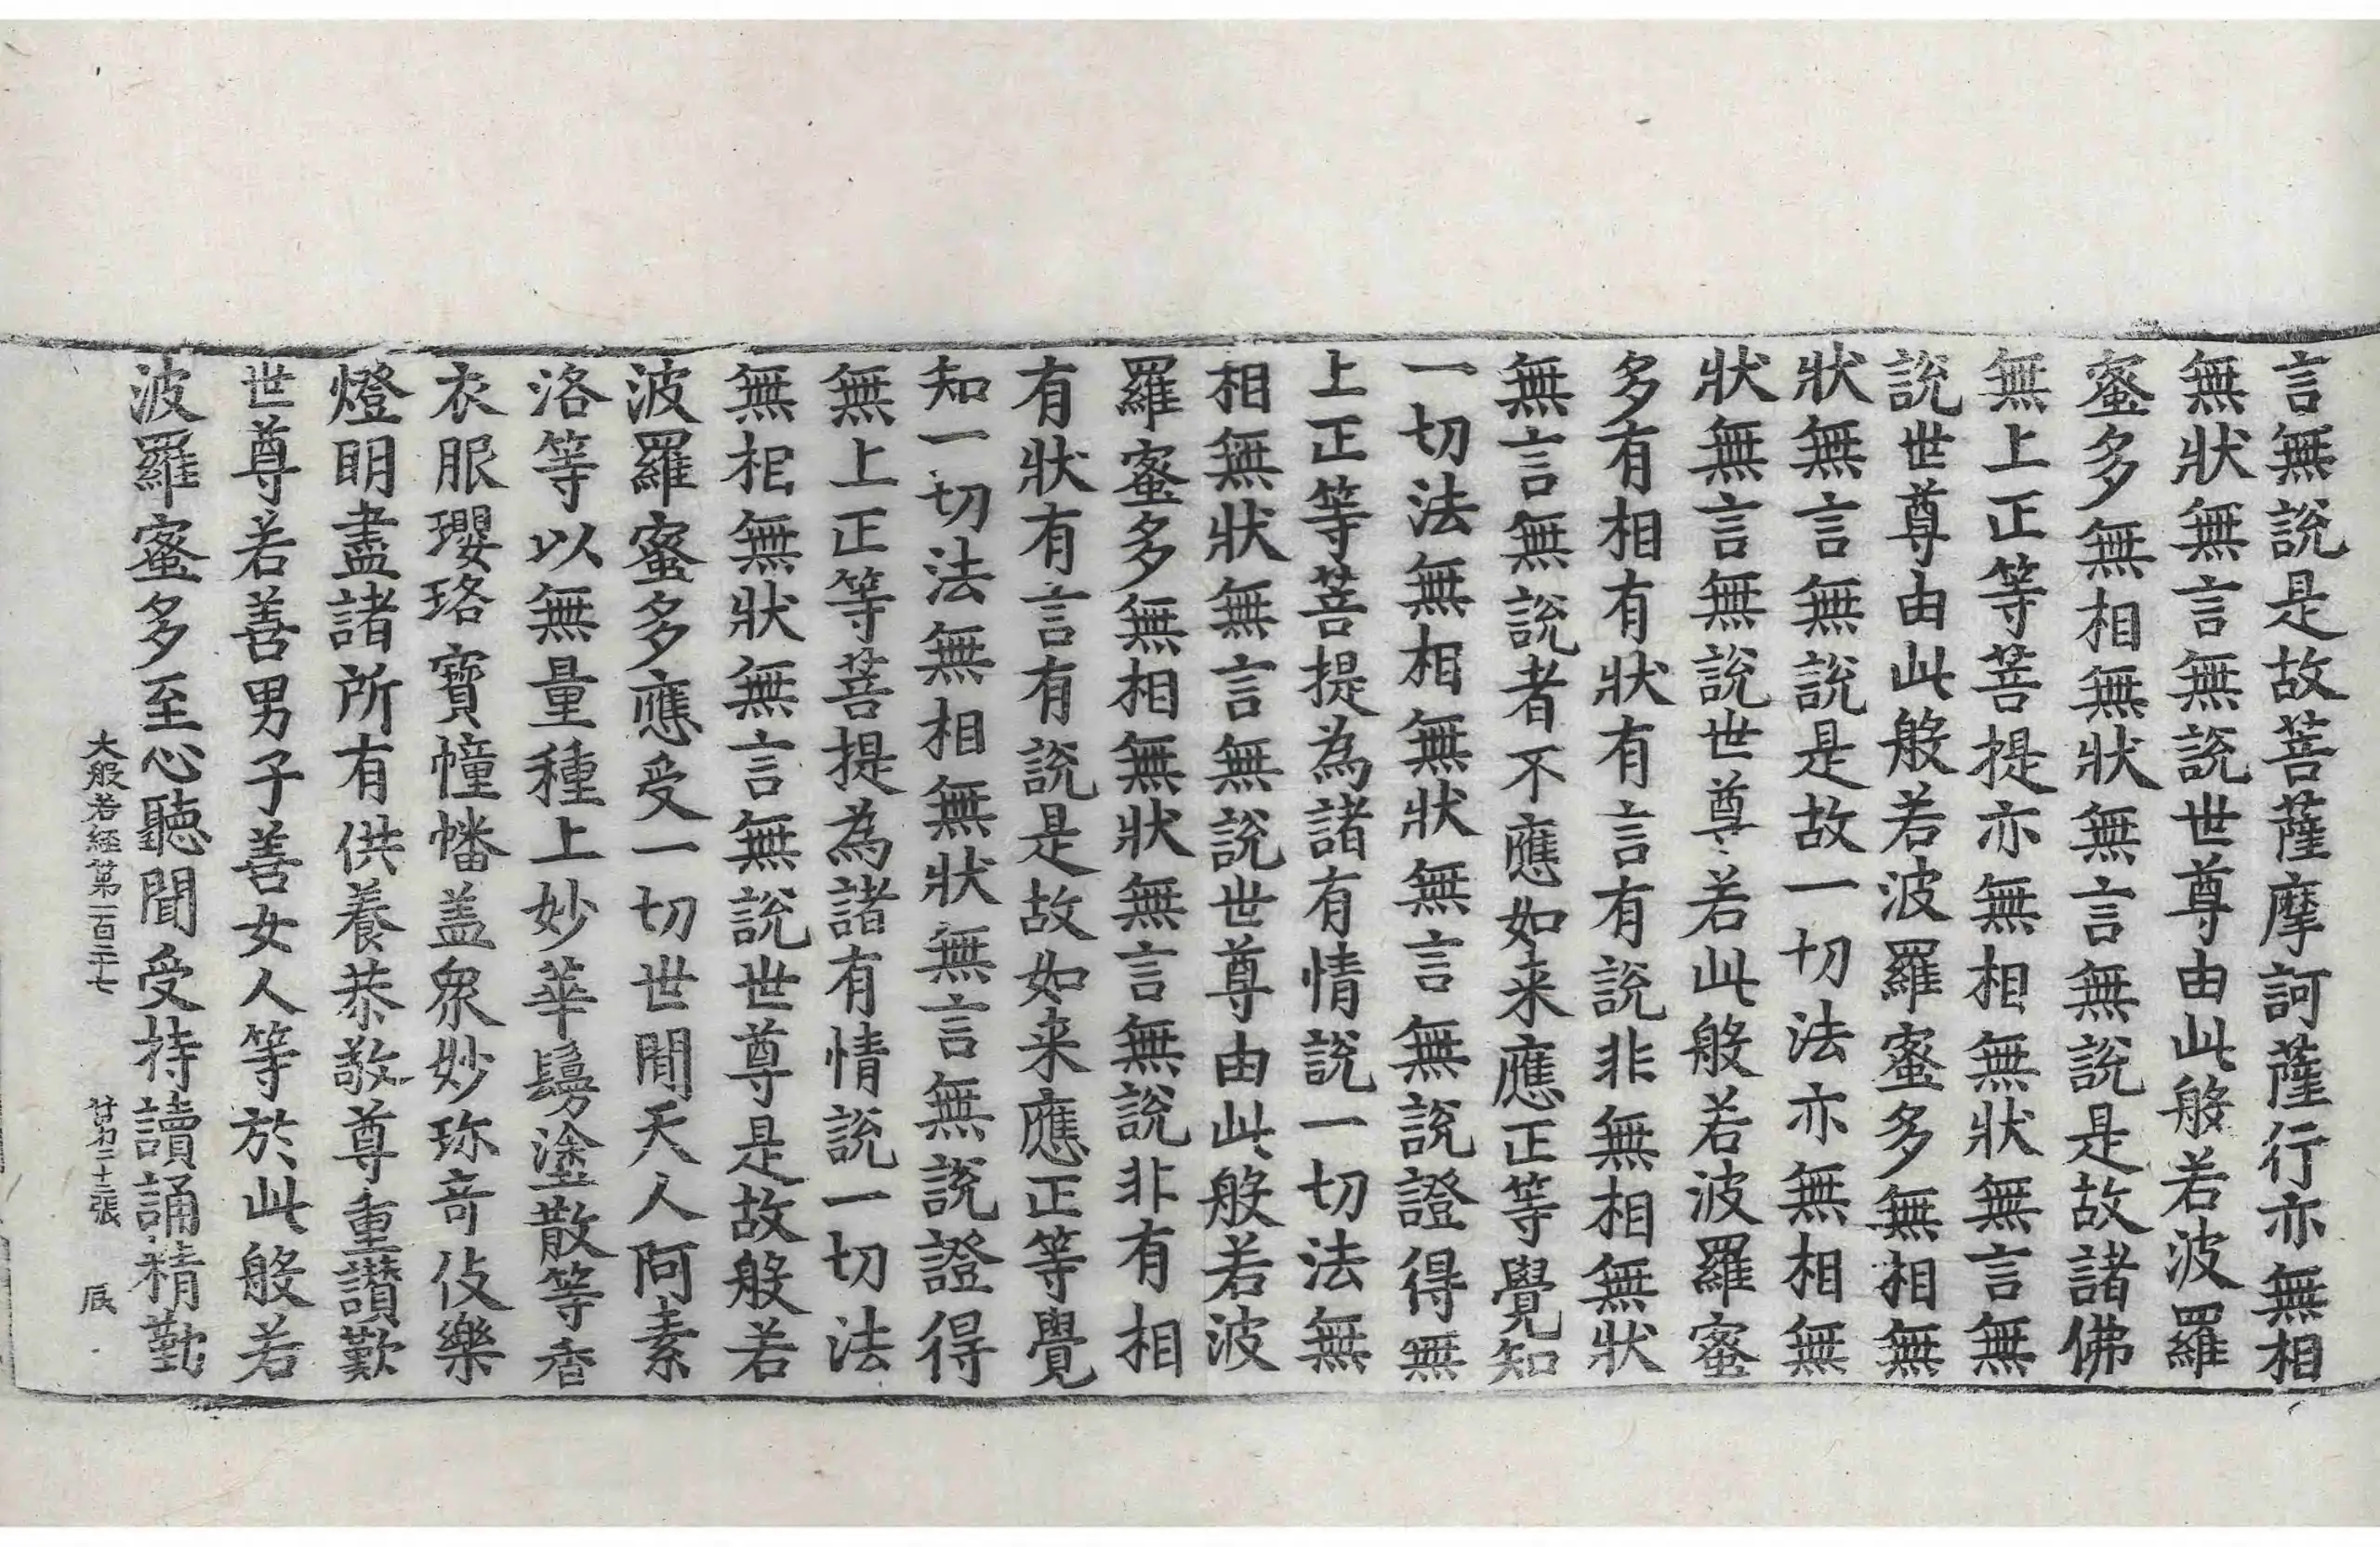 言無說是故菩薩摩訶薩行亦無相
無狀無言無說世尊由此般若波羅
蜜多無相無狀無言無說是故諸佛
無上正等菩提亦無相無狀無言無
說世尊由此般若波羅蜜多無相無
狀無言無說是故一切法亦無相無
狀無言無說世尊若此般若波羅蜜
多有相有狀有言有說非無相無狀
無言無說者不應如来應正等覺知
一切法無相無狀無言無說證得無
上正等菩提為諸有情說一切法無
相無狀無言無說世尊由此般若波
羅蜜多無相無狀無言無說非有相
有狀有言有說是故如来應正等覺
知一切法無相無狀無言無說證得
無上正等菩提為諸有情說一切法
無相無狀無言無說世尊是故般若
波羅蜜多應受一切世間天人阿素
洛等以無量種上妙華鬘塗散等香
衣服瓔珞寶幢幡盖衆妙珎竒伎樂
燈明盡諸所有供養恭敬尊重讃歎
世尊若善男子善女人等於此般若
波羅蜜多至心聽聞受持讀誦精勤
大般若経第一百二十七 第二十二張 辰